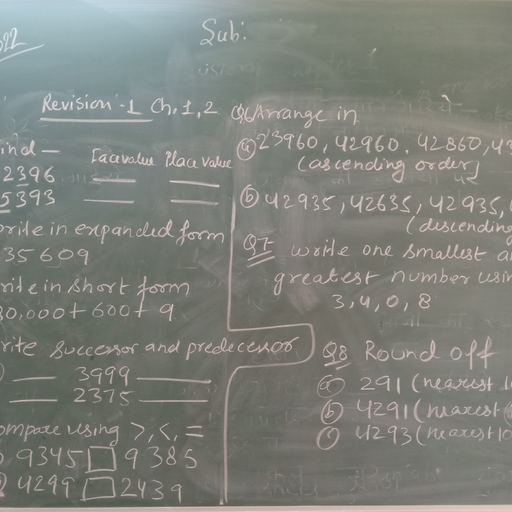 Sub:
Revision-1 Ch.1,2
ind —
Facevalue Place value
2396
5393
write in expanded form
35609
rite in short form
30,000+ 600+ 9.
rite successor and predecessor
3999
2375
ompare using >, <, =
9345 □ 9385
4299 □ 2439
Q6 Arrange in
(a) 23960, 42960, 42860, 43
(ascending order)
(b) 42935, 42635, 42935,
(descending
Q7 write one smallest a
greatest number usin
3, 4, 0, 8
Q8 Round off
(a) 291 (nearest 1
(b) 4291 (nearest
(c) 4293 (nearest 10